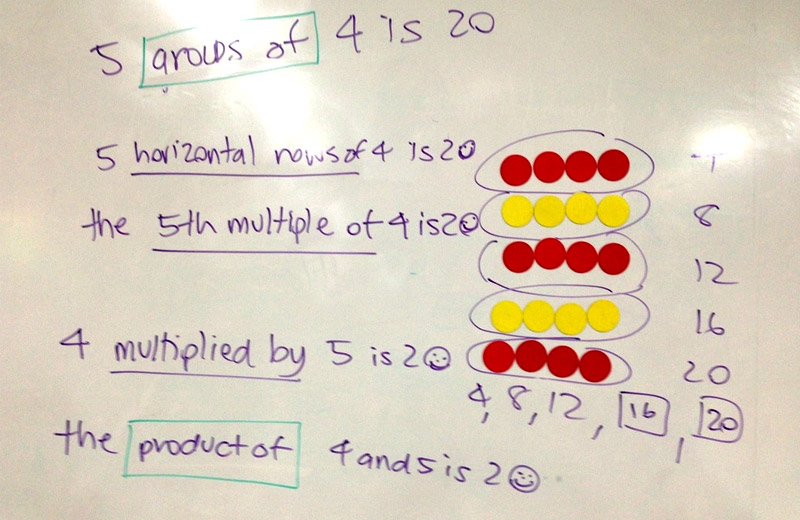 5 groups of 4 is 20
5 horizontal rows of 4 is 20
the 5th multiple of 4 is 20
8
12
16
4 multiplied by 5 is 20
20
4, 8, 12, 16, 20
the product of 4 and 5 is 20